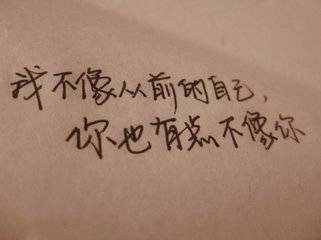 我不像从前的自己，
你也有点不像你